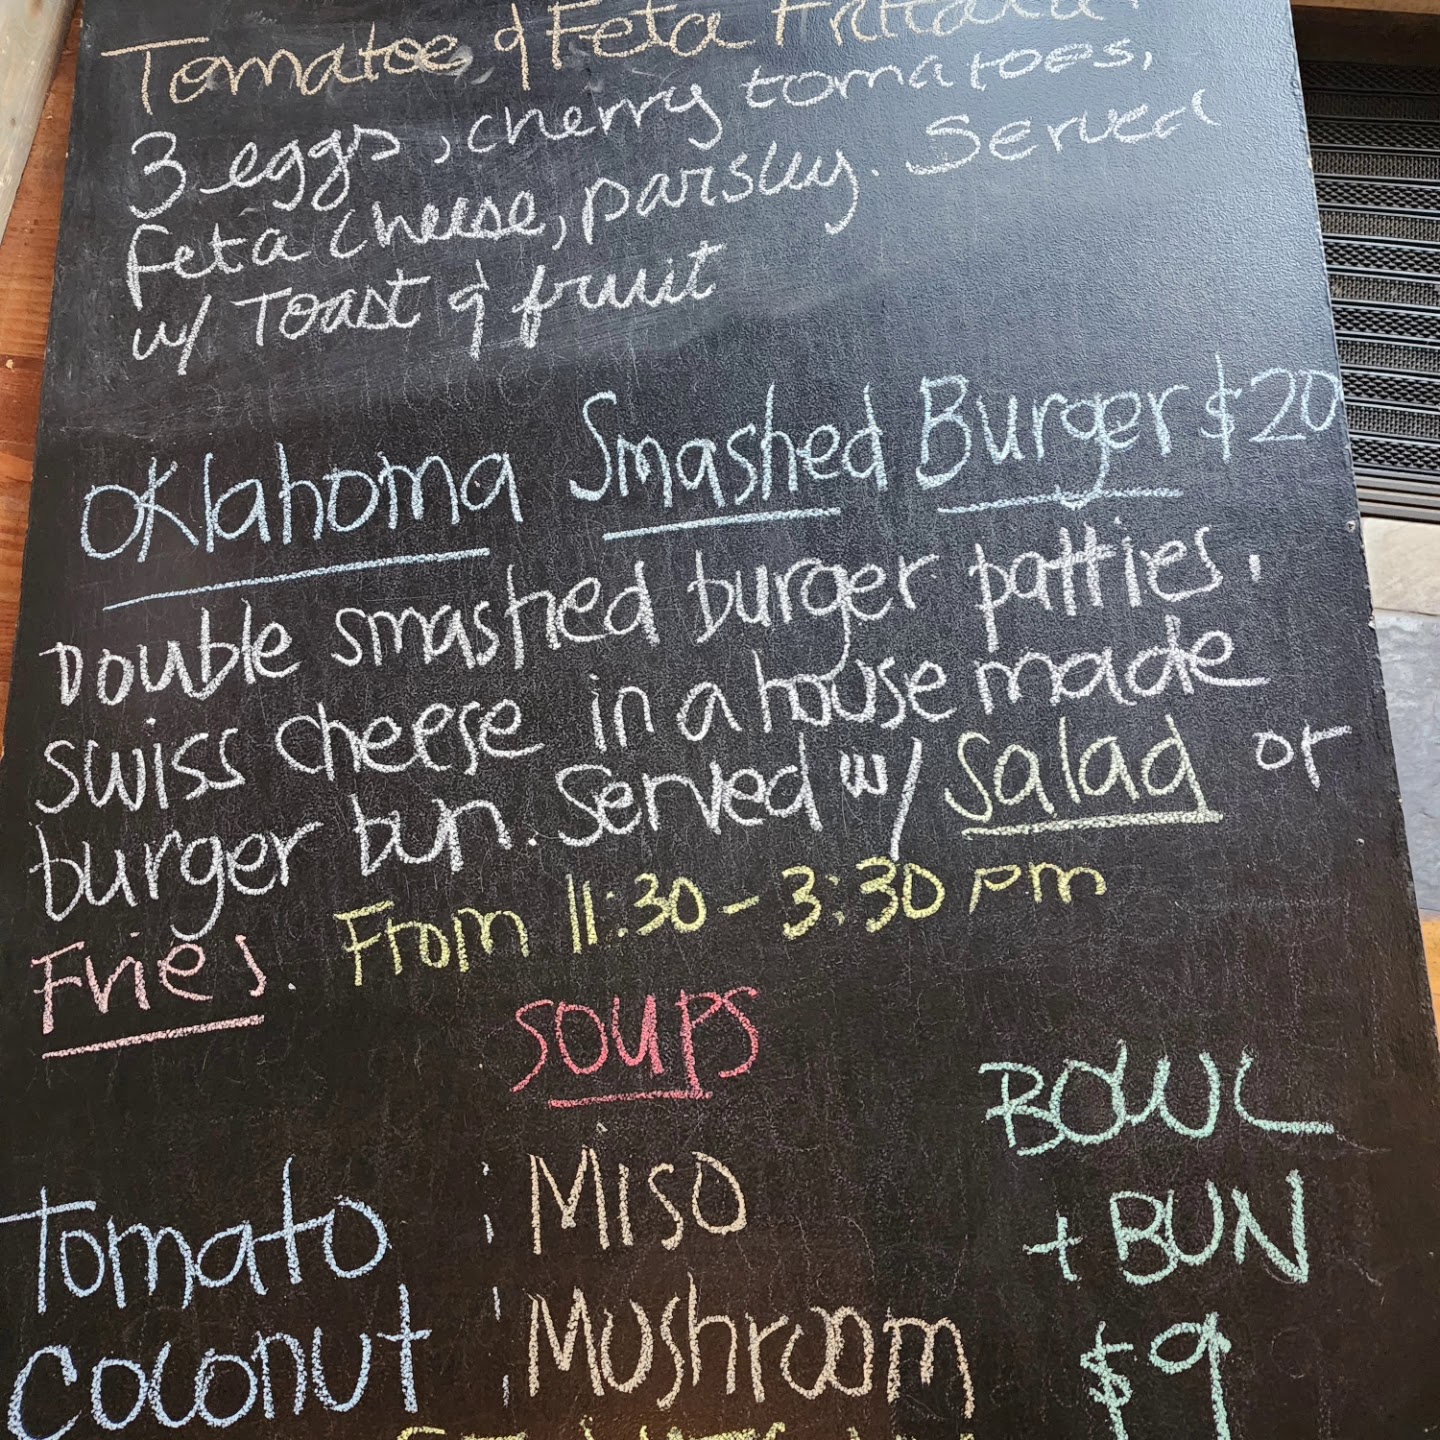 Tomatoe & Feta Frittata
3 eggs, cherry tomatoes,
feta cheese, parsley. Served
w/ Toast & fruit
Oklahoma Smashed Burger $20
Double smashed burger patties,
swiss cheese in a house made
burger bun. Served w/ salad or
Fries. From 11:30 - 3:30 pm
SOUPS
BOWL
Tomato Miso
+ BUN
Coconut Mushroom
$9